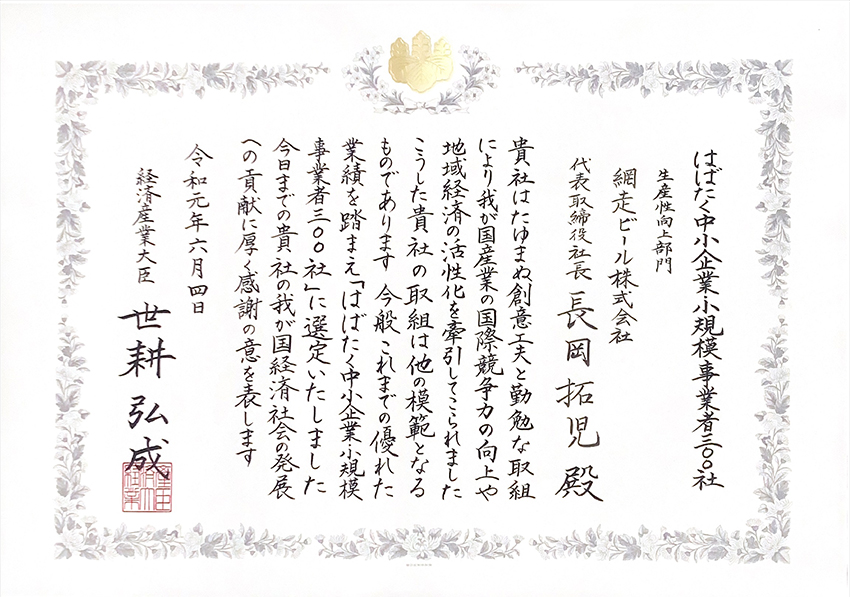 はばたく中小企業・小規模事業者三〇〇社
生産性向上部門
網走ビール株式会社
代表取締役社長 長岡拓児殿
貴社はたゆまぬ創意工夫と勤勉な取組
により我が国産業の国際競争力の向上や
地域経済の活性化を牽引してこられました
こうした貴社の取組は他の模範となる
ものであります 今般これまでの優れた
業績を踏まえ「はばたく中小企業・小規模
事業者三〇〇社」に選定いたしました
今日までの貴社の我が国経済社会の発展
への貢献に厚く感謝の意を表します
令和元年六月四日
経済産業大臣 世耕弘成